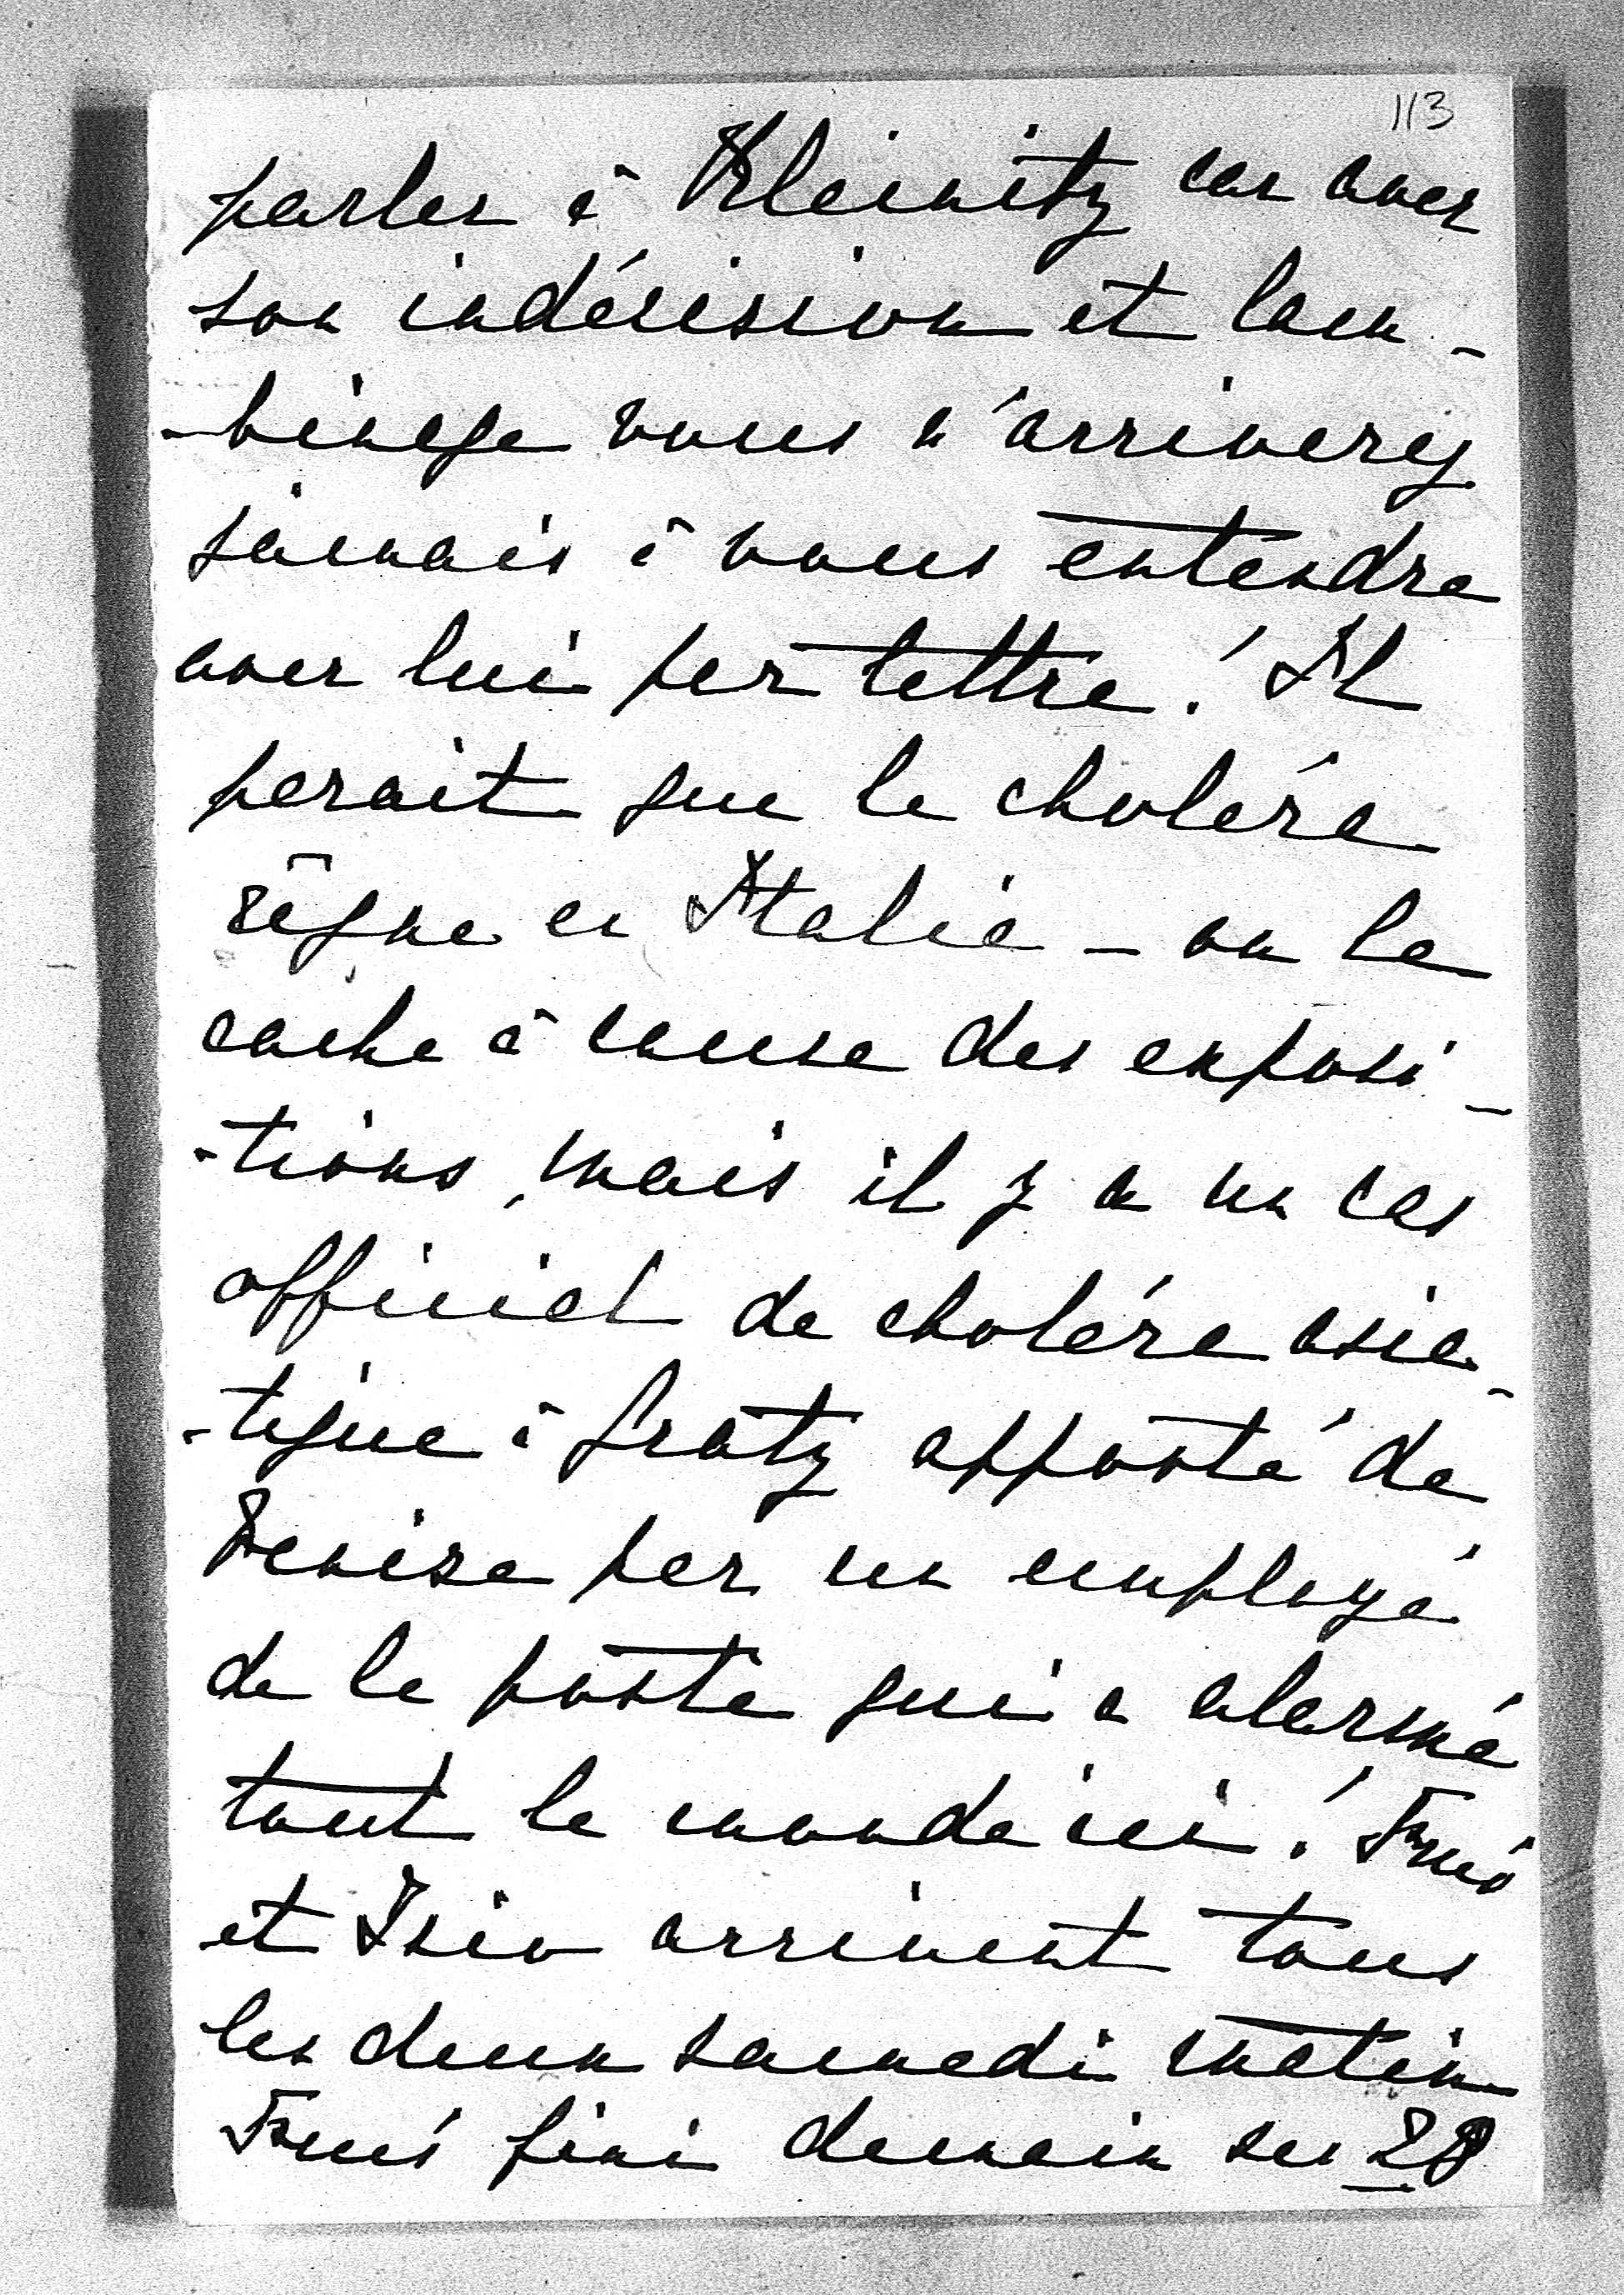 113
parler à Kleinitz car avec
son indécision et lam-
-binage vous n'arriverez
jamais à vous entendre
avec lui par lettre! Il
parait que le choléra
règne en Italie – on le
cache à cause des exposi-
-tions, mais il y a un cas
officiel de choléra asia-
-tique à Gratz apporté de
Venise par un employé
de la poste qui a alarmé
tout le monde ici!
et Isio arrivent tous
les deux samedi matin
fini demain ses 28